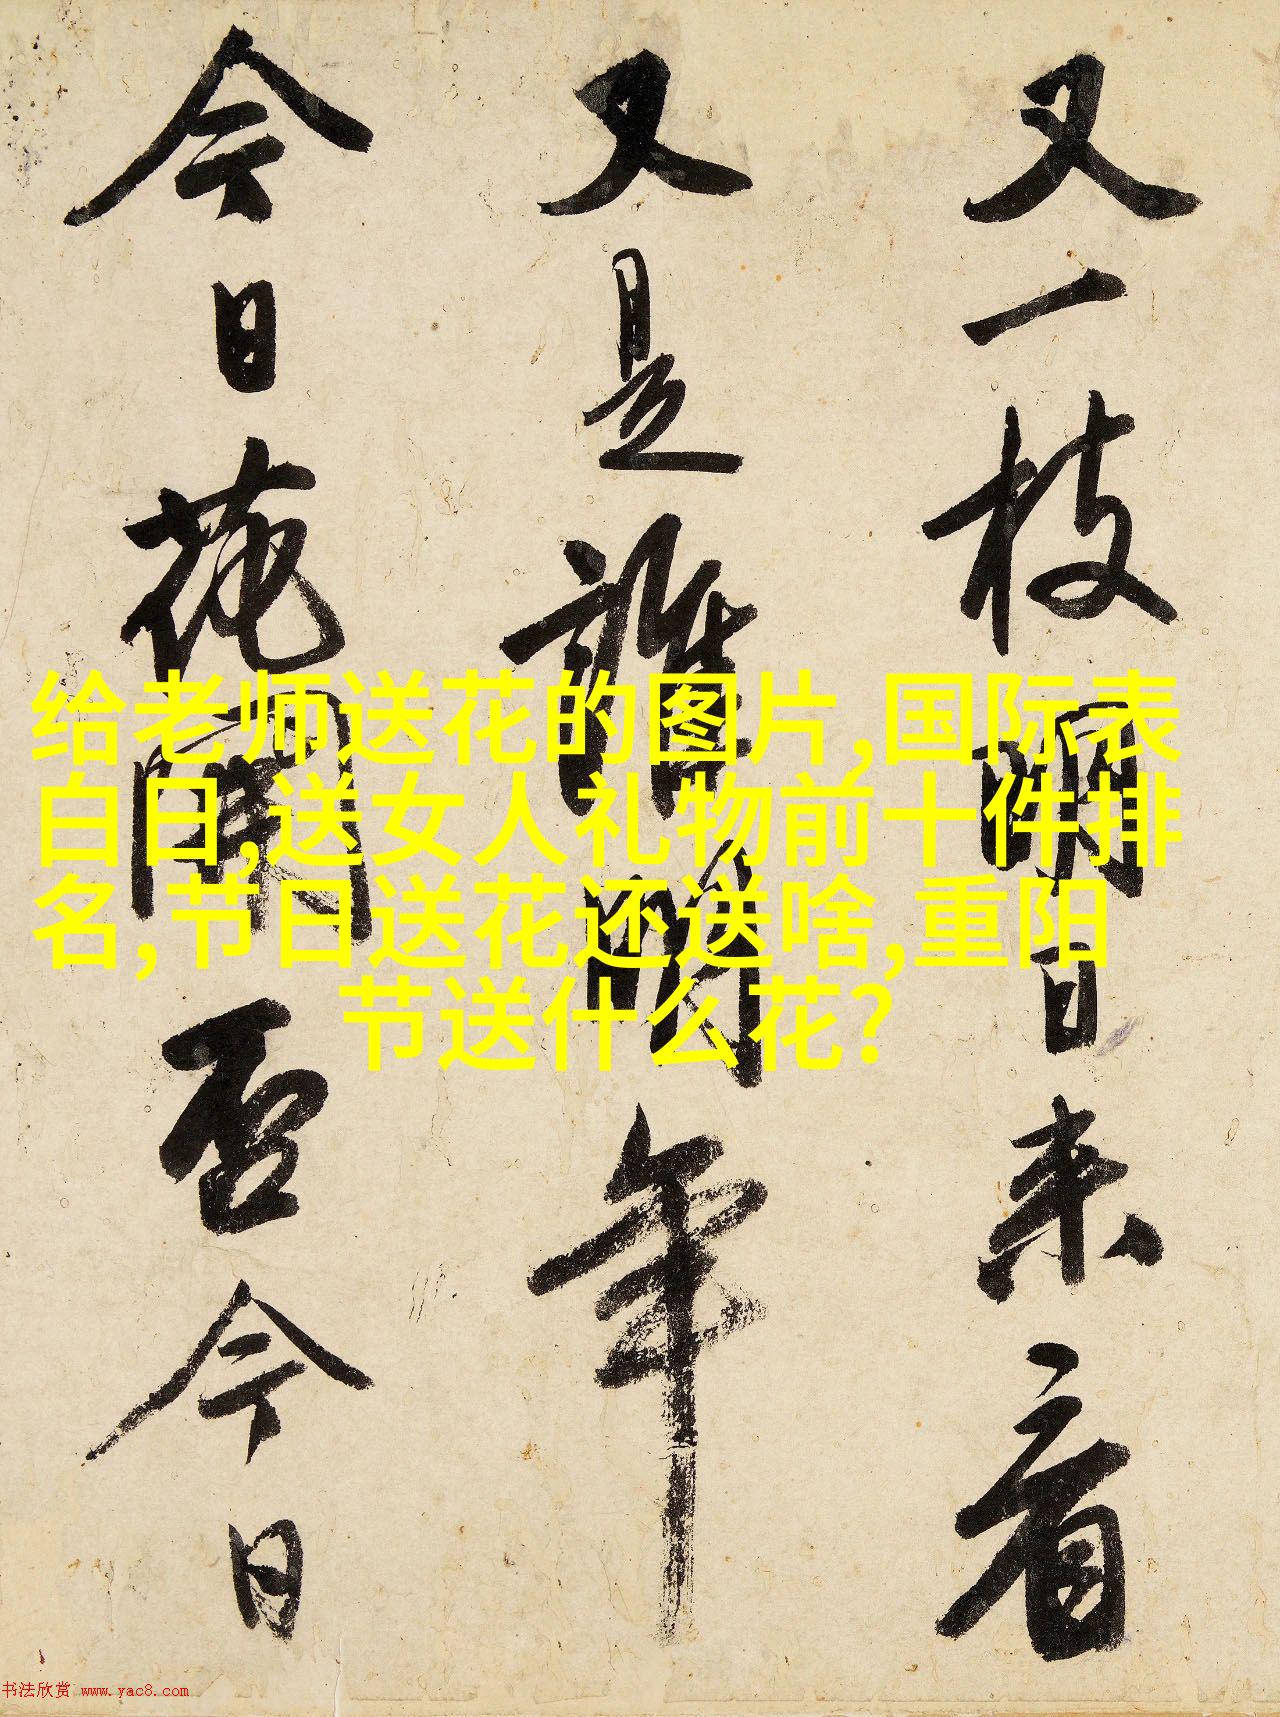 又一枝明日来看
又是誰明年
今日花開否今日
给老师送花的图片,国际表
白日,送女人礼物前十件排
名,节日送花还送啥,重阳
节送什么花?
书法欣赏 www.yac8.com